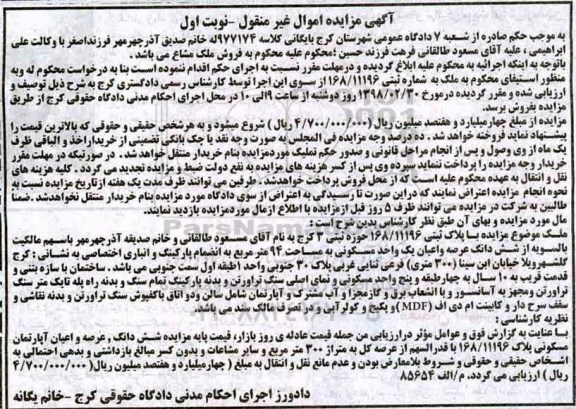 آگهی مزایده اموال غیر منقول -نوبت اول
به موجب حکم صادره از شعبه ۷ دادگاه عمومی شهرستان کرج بایگانی کلاسه ۹۷۷۱۷۳له خانم صدیق آذرچهرمهر فرزنداصغر با وکالت علی
ابراهیمی ، علیه آقای مسعود طالقانی فرهت فرزند حسین :محکوم علیه محکوم به فروش ملک مشاع می باشد .
باتوجه به اینکه اجرائیه به محکوم علیه ابلاغ گردیده و درمهلت مقرر نسبت به اجرای حکم اقدام ننموده است بنا به درخواست محکوم له وبه
منظور استیفای محکوم به ملک به شماره ثبتی ۱۶۸/۱۱۱۹۶ از سوی این اجرا توسط کارشناس رسمی دادگستری کرج به شرح ذیل توصیف و
ارزیابی شده و مقرر گردیده درمورخ ۱۳۹۸/۰۲/۳۰ روز دوشنبه از ساعت ۹الی ۱۰ در محل اجرای احکام مدنی دادگاه حقوقی کرج از طریق
مزایده بفروش برسد.
مزایده از مبلغ چهارمیلیارد و هفتصد میلیون ریال (۴/۷۰۰/۰۰۰/۰۰۰ ریال ) شروع میشود و به هرشخص حقیقی و حقوقی که بالاترین قیمت را
پیشنهاد نماید فروخته خواهد شد . ده درصد وجه مزایده فی المجلس به صورت وجه نقد یا چک بانکی تضمینی از خریداراخذ و الباقی ظرف
یک ماه از وی وصول و پس از انجام مراحل قانونی و صدور حکم تملیک موردمزایده بنام خریدار منتقل خواهد شد . در صورتیکه در مهلت مقرر
خریدار وجه مزایده را پرداخت ننماید سپرده وی پس از کسر هزینه های مزایده به نفع دولت ضبط و مزایده تجدید می گردد . کلیه هزینه های
نقل و انتقال به عهده محکوم علیه است که از محل فروش پرداخت خواهدشد . طرفین می توانند ظرف مدت یک هفته ازتاریخ مزایده نسبت به
نحوه انجام مزایده اعتراض نمایند که دراین صورت تا رسیدگی به اعتراض از سوی دادگاه مورد مزایده بنام خریدار منتقل نخواهدشد .ضمنا
طالبین به شرکت در مزایده می توانند ظرف ۵ روز قبل ازمزایده با اطلاع ازمال موردمزایده بازدید نمایند.
مال مورد مزایده و بهای آن طبق نظر کارشناس بدین شرح است:
ملک موضوع مزایده با پلاک ثبتی ۱۶۸/۱۱۱۹۶ حوزه ثبتی ۳ کرج به نام آقای مسعود طالقانی و خانم صدیقه آذرچهرمهر باسهم مالکیت
بالسویه از شش دانگ عرصه واعیان یک واحد مسکونی به مساحت ۹۴متر مربع به انضمام پارکینگ و انباری اختصاصی به نشانی : کرج
گلشهرویلا خیابان ابن سینا (۳۰۰ متری) فرعی ثنایی غربی پلاک ۳۰ جنوبی واحد ۱طبقه اول سمت جنوبی می باشد . ساختمان با سازه بتنی و
قدمت قریب به ۱۰ سال به چهارطبقه و پنج واحد مسکونی و نمای اصلی سنگ تراورتن و بدنه پارکینگ تمام سنگ و بدنه راه پله تایک متر سنگ
تراورتن ومجهز به آسانسور و با انشعاب برق و گازمجزا و آب مشترک و آپارتمان شامل سالن ودو اتاق باکفپوش سنگ تراورتن و بدنه نقاشی و
سقف سرح دار و کابینت ام دی اف (MDF) و پکیج و کولرآبی و در تصرف مالک سند می باشد.
نظر به کارشناسی :
با عنایت به گزارش فوق و عوامل مؤثر درارزیابی من جمله قیمت عادله ی روز بازار، قیمت پایه مزایده شش دانگ , عرصه و اعیان آپارتمان
مسکونی پلاک ۱۶۸/۱۱۱۹۶ با قدرالسهم از عرصه کل به متراژ ۳۰۰ متر مربع و سایر مشاعات و بدون کسر مبالغ بازداشتی و بدهی احتمالی به
اشخاص حقیقی و حقوقی و شروط بلامعارض بودن و عدم مانع نقل و انتقال به مبلغ ( چهارمیلیارد و هفتصد میلیون ریال( ۴/۷۰۰/۰۰۰/۰۰۰
ریال ) ارزیابی می گردد. م/الف ۸۵۶۵۴
دادورز اجرای احکام مدنی دادگاه حقوقی کرج -خانم یگانه